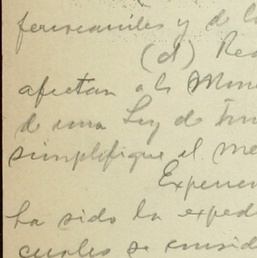 ferrocarriles y de l
(d) Re
afectan a la Min
de una Ley de
simplifique el me
Experien
ha sido la exped
cuales se consid